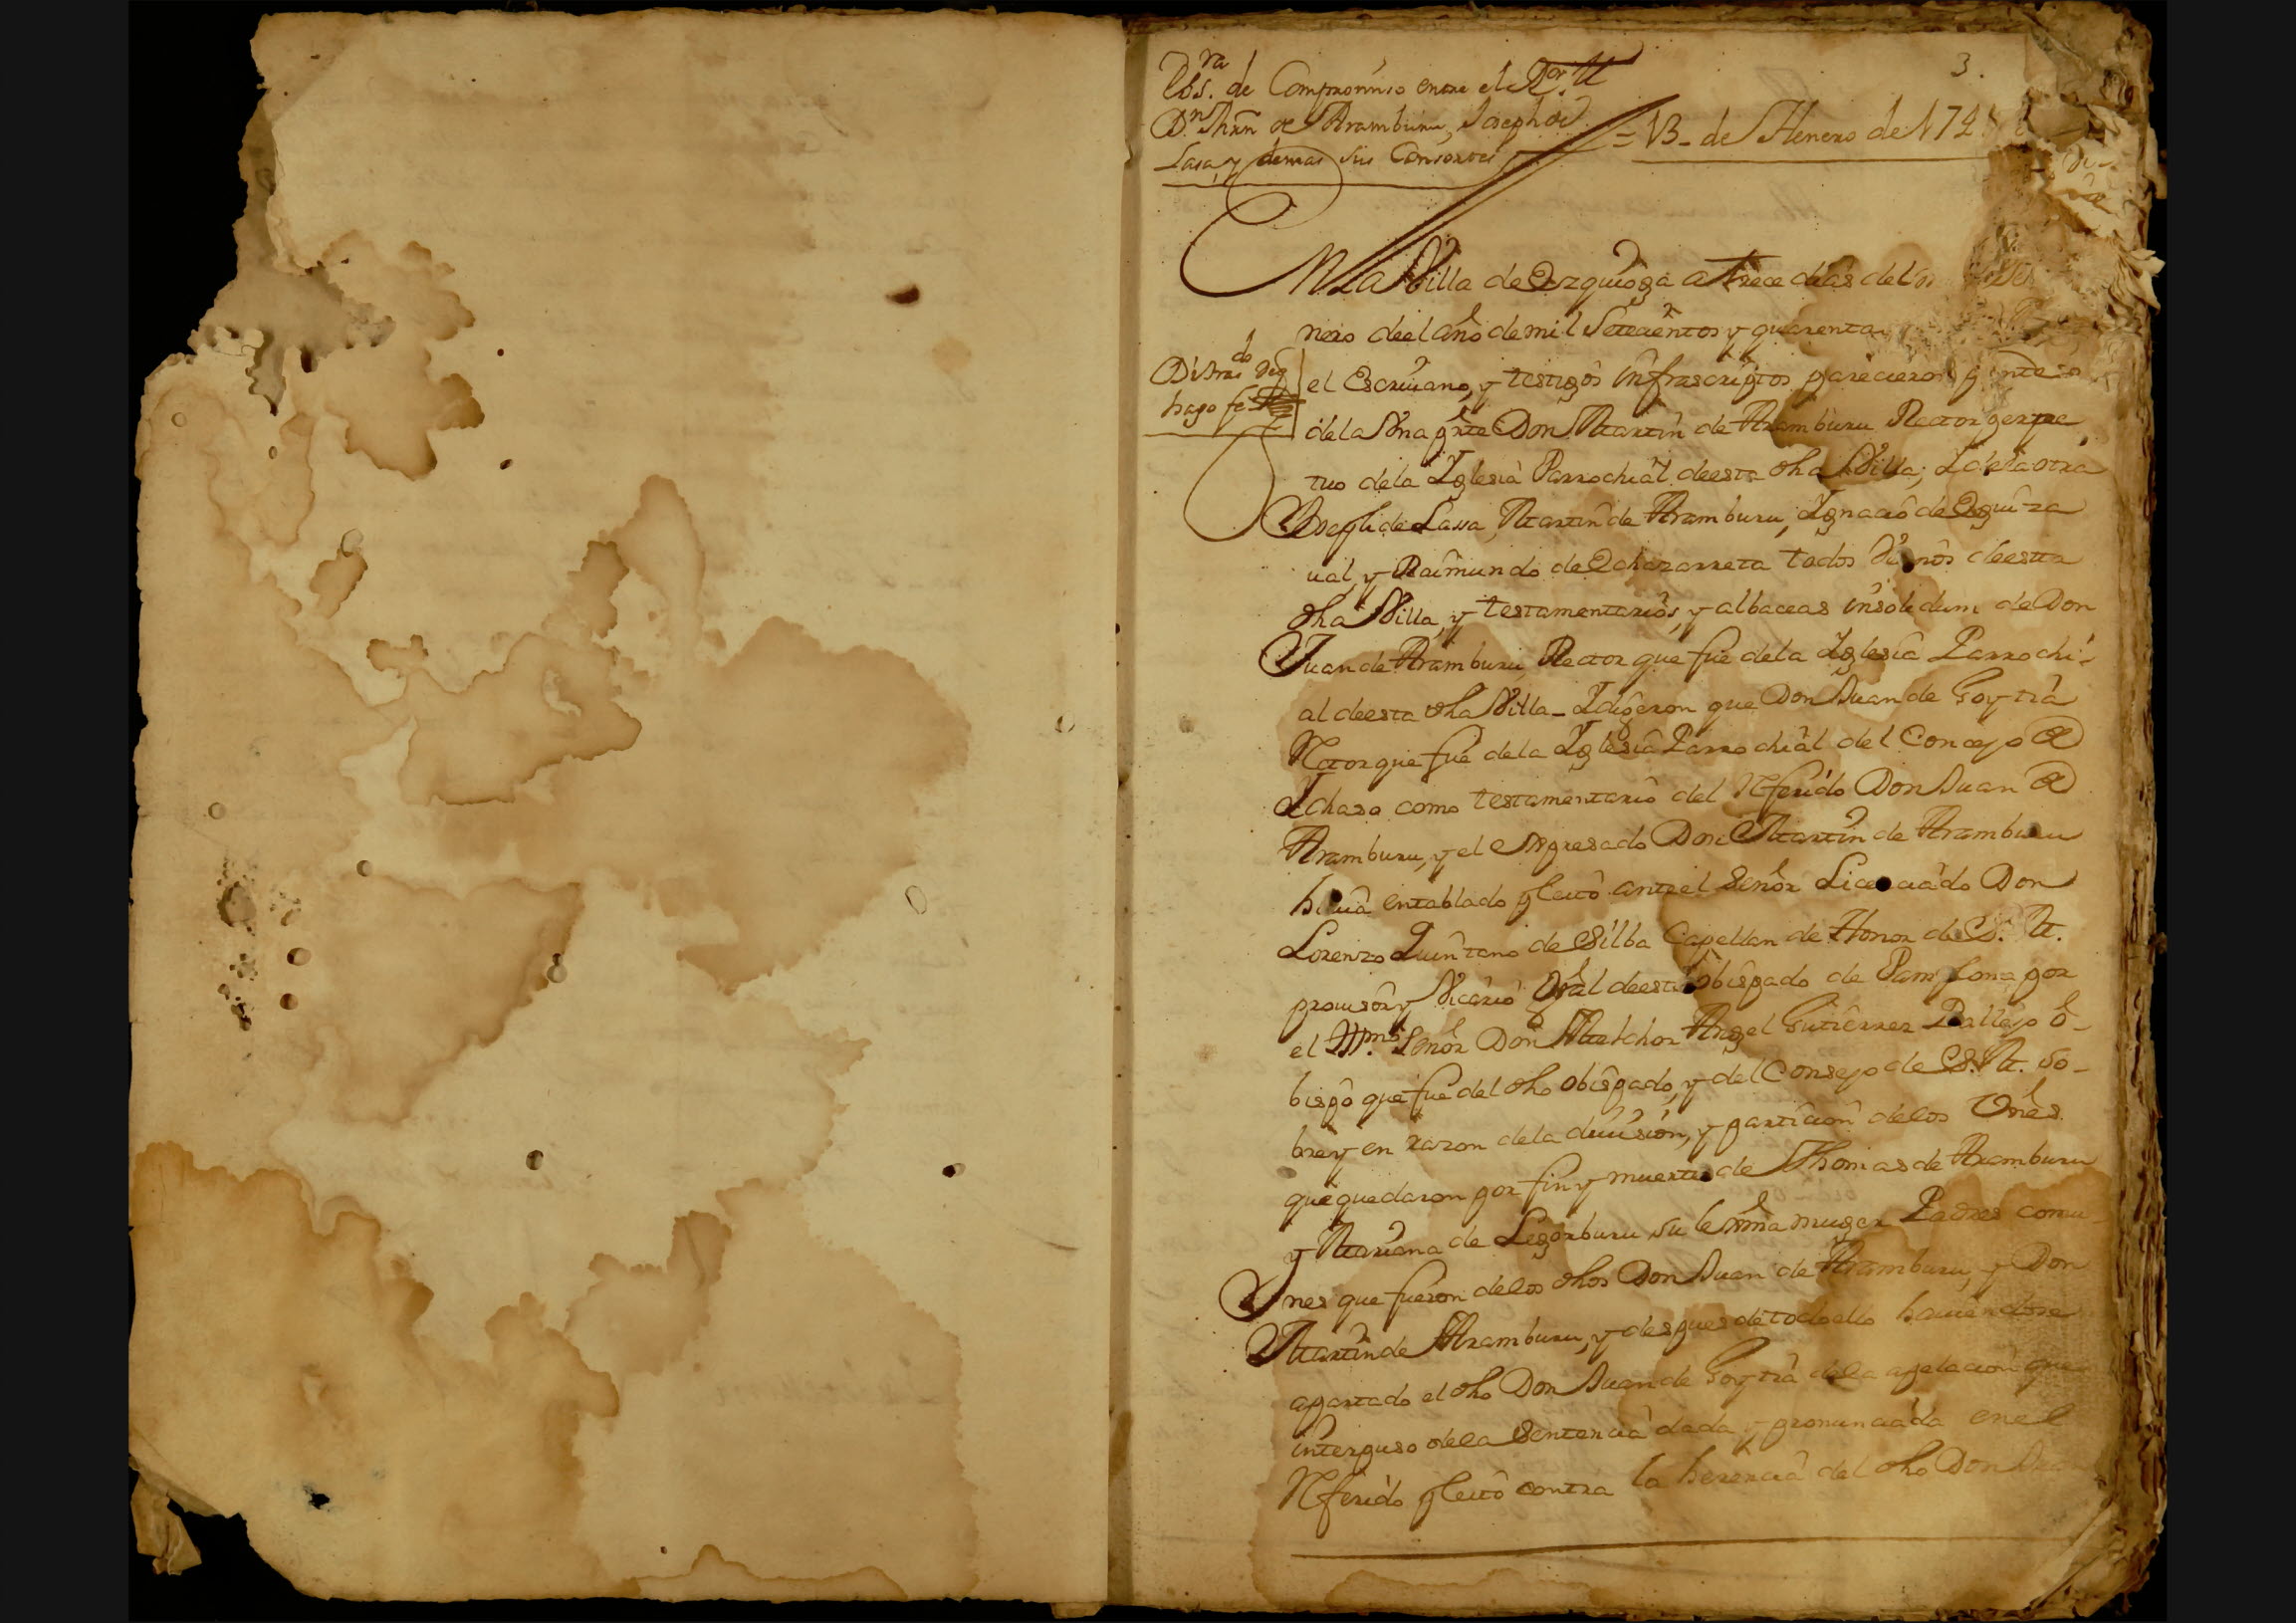 3.
Obs.ra de Compromiso entre el R.or
D.n Mrn de Aramburu, Joseph de
Lasa, y demas sus Consortes
= 13 - de Henero de 174
En la Villa de Ezquioga a trece dias del
nero de el año de mil Setecientos y quarenta
hago fe
el Escriuano, y testigos infrascriptos parecieron
de la Vna prte Don Martin de Aramburu Rector perpe
tuo de la Iglesia Parrochial de esta dha Villa; I de la otra
Joseph de Lassa, Martin de Aramburu, Ignacio de Eguiza
ual, y Raimundo de Echazarreta todos de esta
dha Villa, y testamentarios, y albaceas insolidum de Don
Juan de Aramburu, Rector que fue de la Iglesia Parrochi-
al de esta dha Villa - I digeron que Don Juan de Goytia
Retor que fue de la Iglesia Parrochial del Concejo de
Ichaso como testamentario del Referido Don Juan de
Aramburu, y el expresado Don Martin de Aramburu
hauia entablado pleito ante el Señor Licenciado Don
Lorenzo Quintano de Silba Capellan de Honor de S. M.
prouisor y Vicario Gral de este obispado de Pamplona por
el Illmo. Señor Don Melchor Angel Gutierrez Ballejo o-
bispo que fue del dho obispado, y del Consejo de S. M. so-
bre y en razon de la diuision, y particion de los Vnes.
que quedaron por fin y muerte de Thomas de Aramburu
y Mariana de Legorburu su lexma muger Padres comu-
nes que fueron de los dhos Don Juan de Aramburu, y Don
Martin de Aramburu, y despues de todo ello hauiendose
apartado el dho Don Juan de Goytia de la apelacion que
interpuso de la Sentencia dada y pronunciada en el
Referido pleito contra la herencia del dho Don Juan